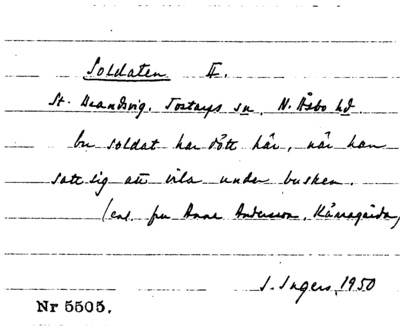 Soldaten II.
St. Brandsvig. Tostarps sn, N. Åsbo hd.
En soldat har dött här, när han
satt sig att vila under busken.
(enl. fru Anna Andersson, Kärragärda)
I. Ingers, 1950
Nr 5505.